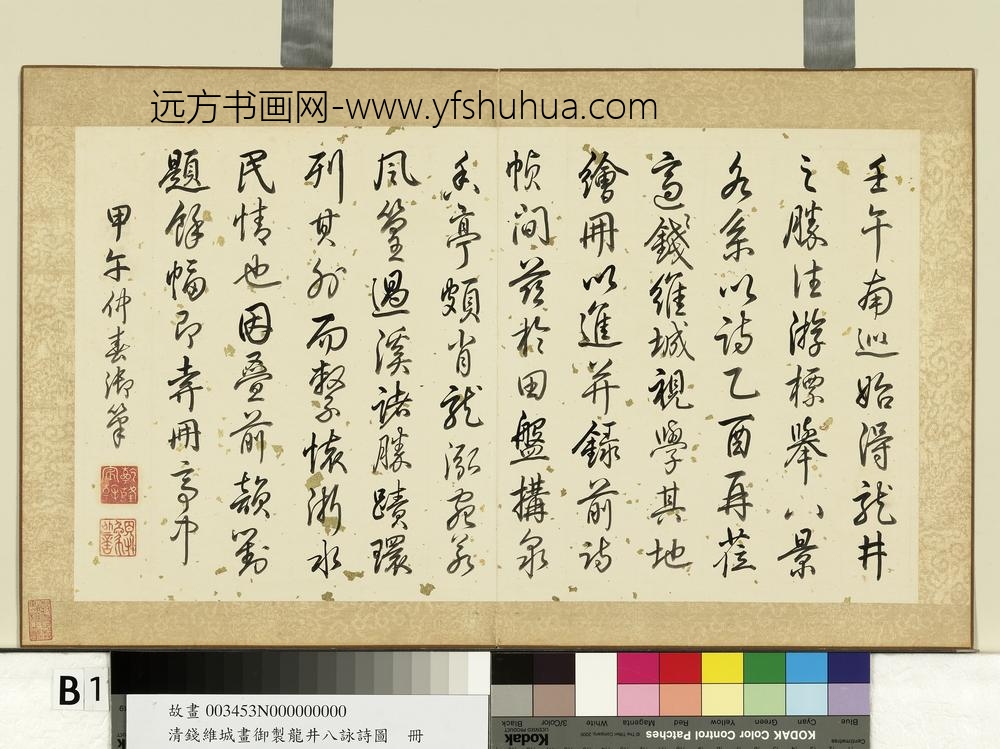 远方书画网-www.yfshuhua.com
壬午南巡始得龍井
之勝佳游標舉八景
各系以詩乙酉再蒞
適錢維城視學其地
繪冊以進并錄前詩
幀間茲於田盤搆泉
香亭頗肖龍泓宛若
風篁過溪諸勝蹟環
列其外而繫懷浙水
民情也因疊前韻對
題餘幅即弆冊亭中
甲午仲春御筆
B 1
故畫 003453N000000000
清錢維城畫御製龍井八詠詩圖 冊
Blue Cyan Green Yellow Red Magenta White 3/Color Black
KODAK Color Control Patches
Kodak
LICENSED PRODUCT
Centimetres